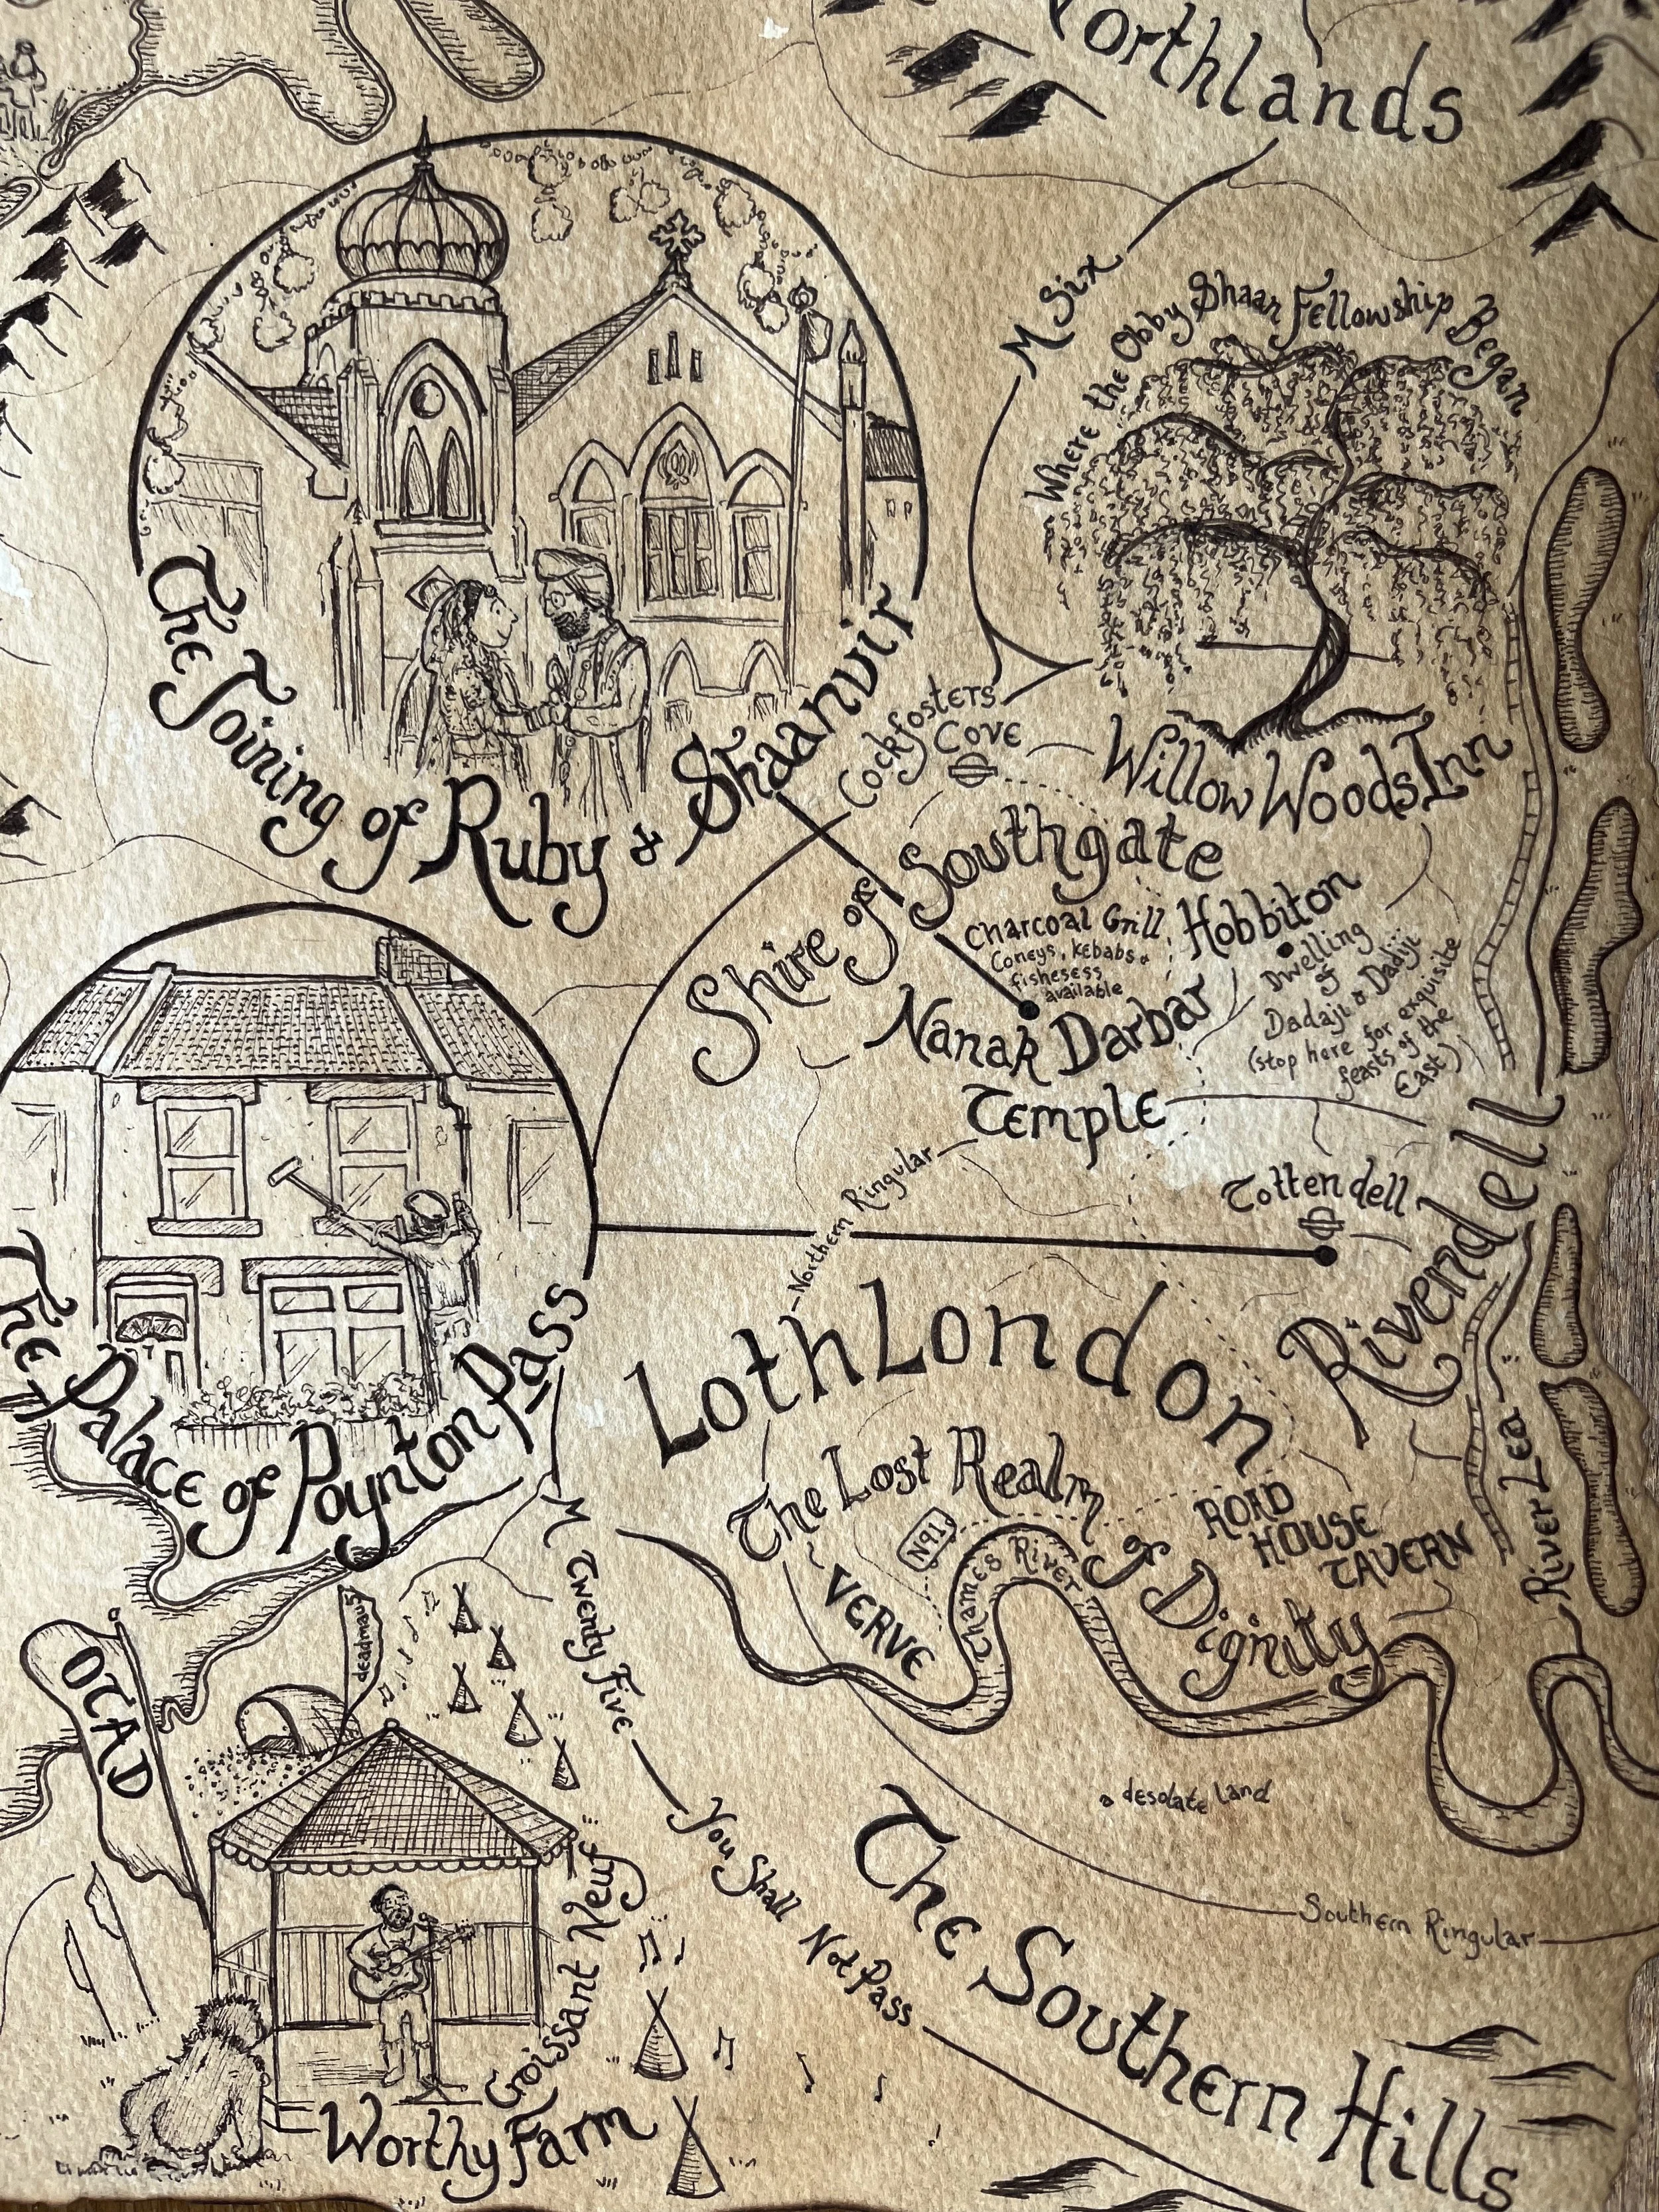 Northlands
M Six
Where the Obby Shaan Fellowship Began
The Joining of Ruby & Shaanvir
Willow Woods Inn
Cockfosters
Cove
Shire of Southgate
Charcoal Grill
Coneys, Kebabs &
fishesess
available
Hobbiton
Dwelling
of
Dadaji & Dadiji
(stop here for exquisite
feasts of the
East)
Nanak Darbar
Temple
Northern Ringular
Tottendell
Rivendell
The Palace of Poynton Pass
LothLondon
The Lost Realm of Dignity
N91
VERVE
Thames River
ROAD
HOUSE
TAVERN
River Lea
M Twenty Five
You Shall Not Pass
OTAD
deadmau5
a desolate land
The Southern Hills
Southern Ringular
Croissant Neuf
Worthy Farm